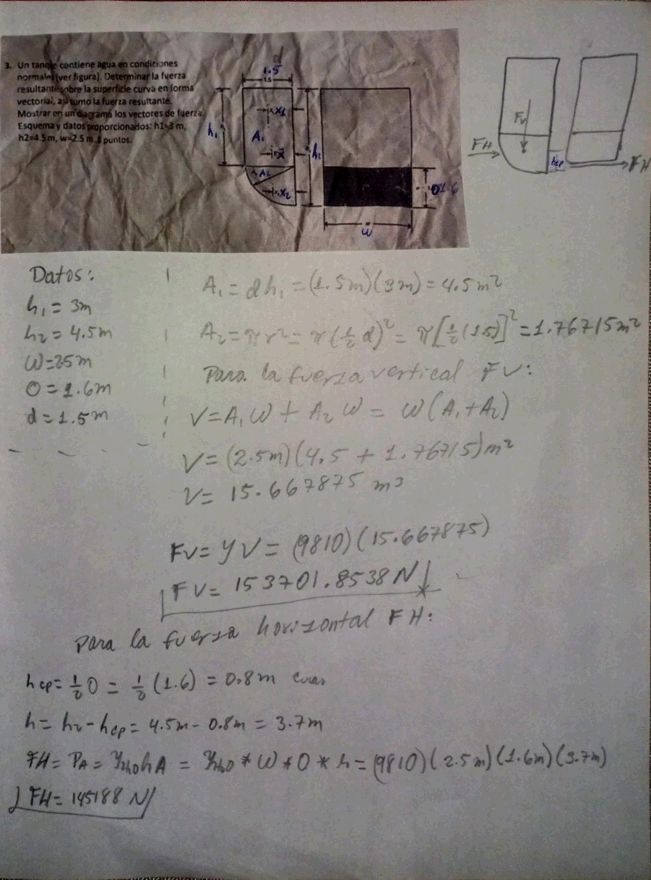 3. Un tanque contiene agua en condiciones
normales (ver figura). Determinar la fuerza
resultante sobre la superficie curva en forma
vectorial, así como la fuerza resultante.
Mostrar en un diagrama los vectores de fuerza.
Esquema y datos proporcionados: h1=3 m,
h2=4.5 m, w=2.5 m. 3 puntos.
d
1.5
h1
x1
A1
x̄
A2
x2
h2
1.6
w
Fv
FH
hcp
FH
Datos:
h1 = 3m
h2 = 4.5m
W=25m
O = 1.6m
d = 1.5m
A1 = dh1 = (1.5m)(3m) = 4.5m²
A2 = πr² = π(½d)² = π[½(1.5)]² = 1.76715m²
Para la fuerza vertical FV:
V = A1W + A2W = W(A1+A2)
V = (2.5m)(4.5 + 1.76715)m²
V = 15.667875 m3
Fv = γV = (9810)(15.667875)
FV = 153701.8538N
Para la fuerza horizontal FH:
hcp = ½O = ½(1.6) = 0.8m
h = h2 - hcp = 4.5m - 0.8m = 3.7m
FH = PA = γH2O hA = γH2O * W * O * h = (9810)(2.5m)(1.6m)(3.7m)
FH = 145188 N